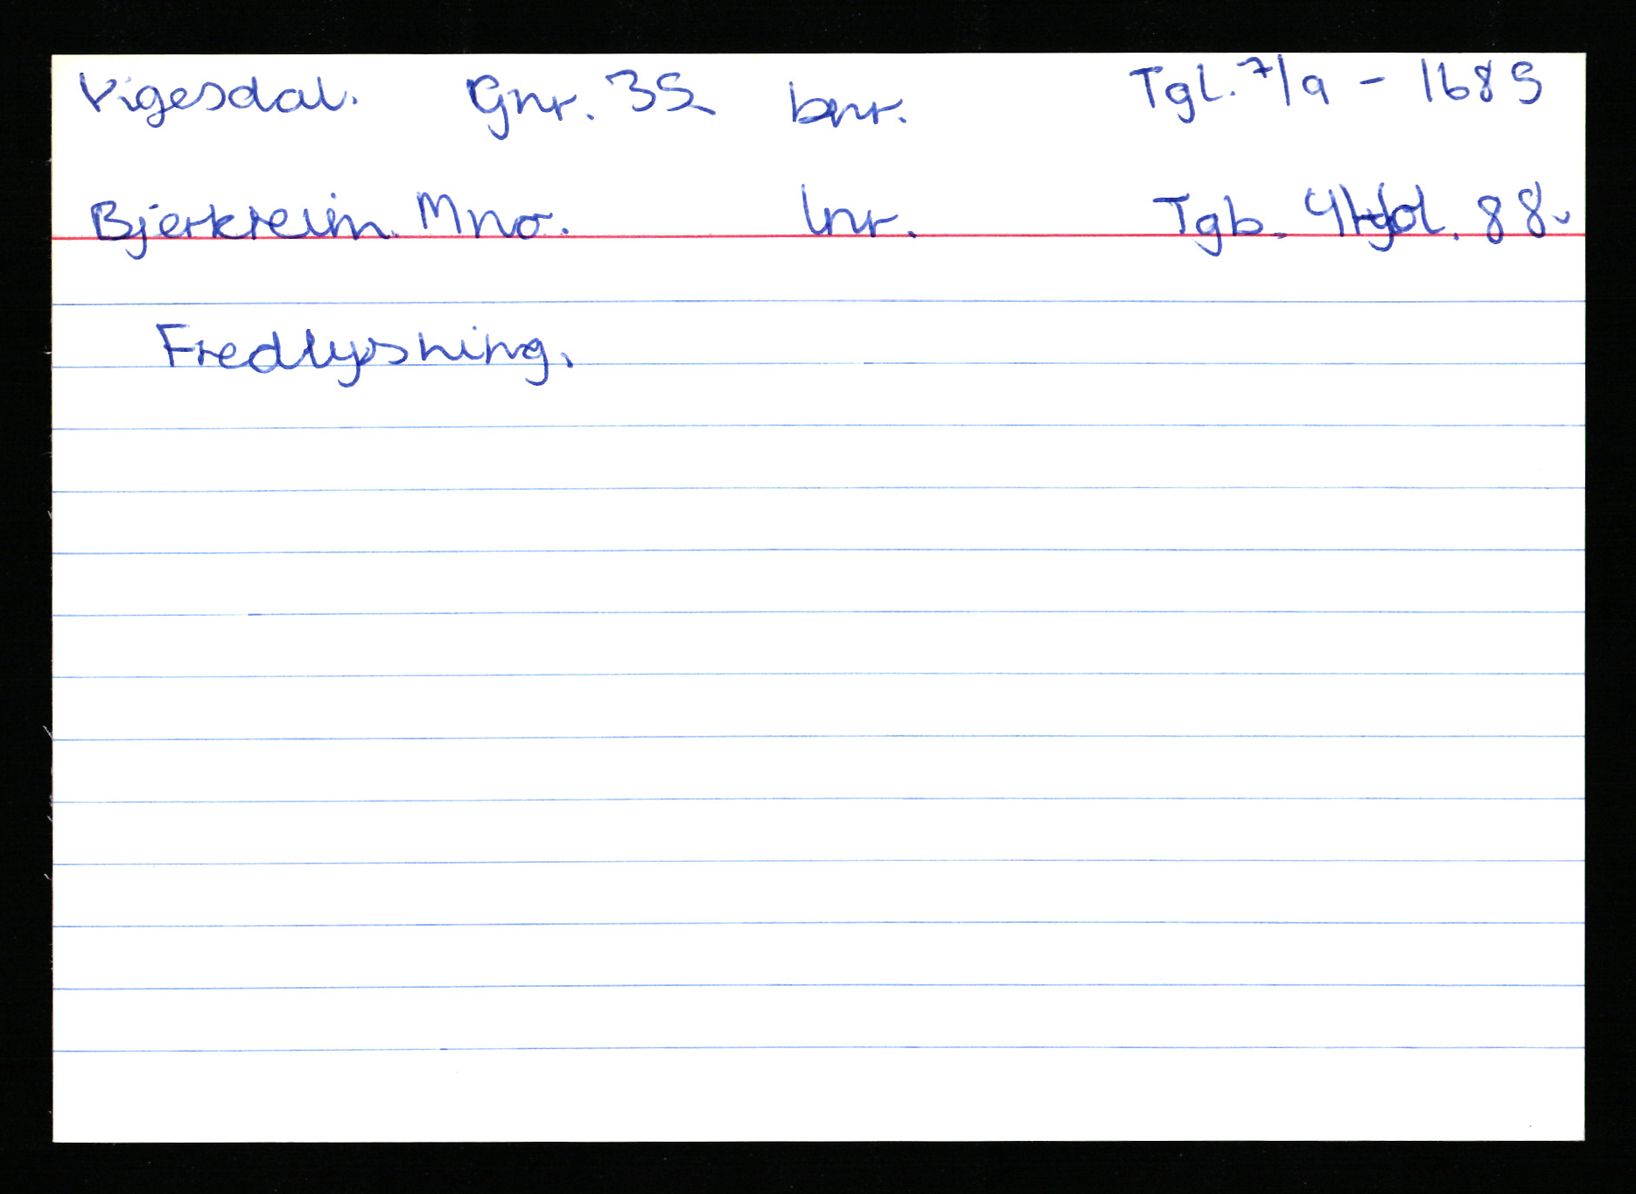 Vigesdal. Gnr. 35 bnr. Tgl. 7/9 - 1685
Bjerkreim. Mno. lnr. Tgb. 4 fol. 88.
Fredlysning.